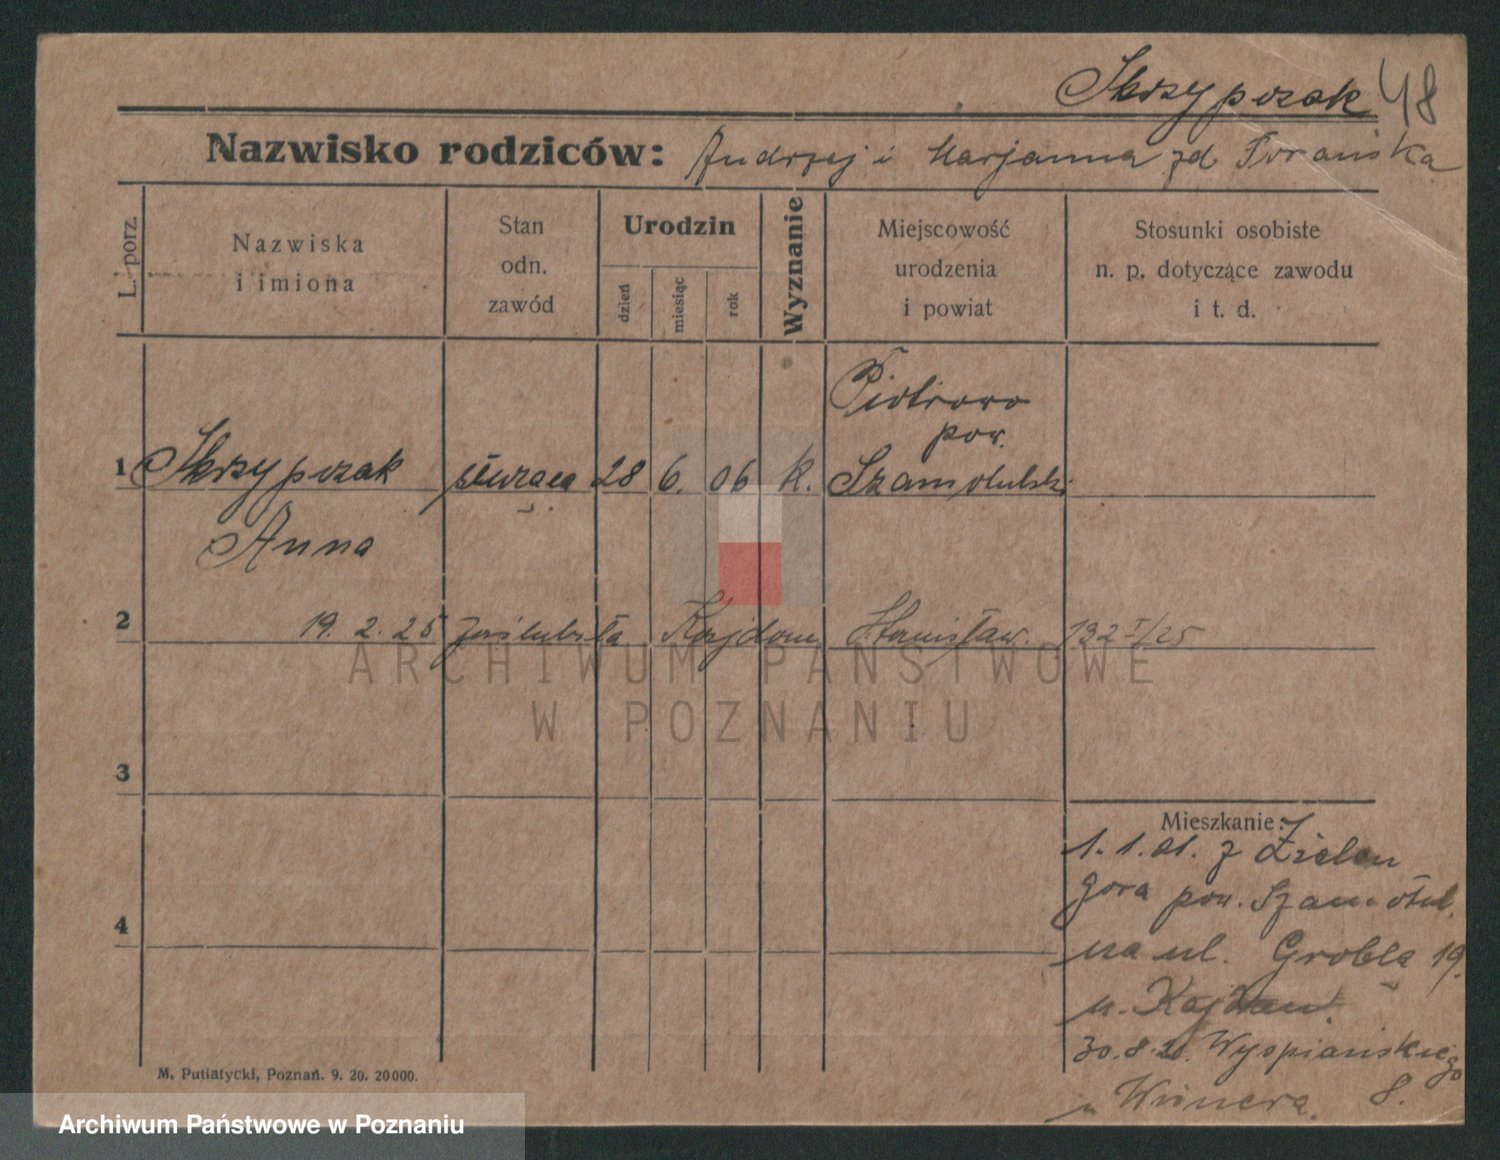 Skrzypczak 48
Nazwisko rodziców: Andrzej i Marjanna zd Torańska
L. porz.
Nazwiska
i imiona
Stan
odn.
zawód
Urodzin
dzień
miesiąc
rok
Wyznanie
Miejscowość
urodzenia
i powiat
Stosunki osobiste
n. p. dotyczące zawodu
i t. d.
Piotrowo
pow.
1 Skrzypczak służąca 28 6. 06 k. Szamotulski
Anna
2 19. 2. 25 zaślubiła Kajdan Stanisław. 132 I/25
ARCHIWUM PAŃSTWOWE
W POZNANIU
3
Mieszkanie:
1. 1. 21. z Zielon
gora pow. Szamotul.
4
na ul. Grobla 19.
u. Kajdan.
30. 8. 21. Wyspiańskiego
8.
M. Putiatycki, Poznań. 9. 20. 20000.
Archiwum Państwowe w Poznaniu